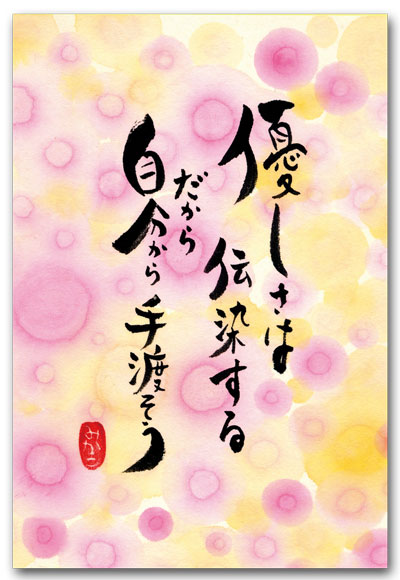 優しさは
伝染する
だから
自分から
手渡そう
みかこ